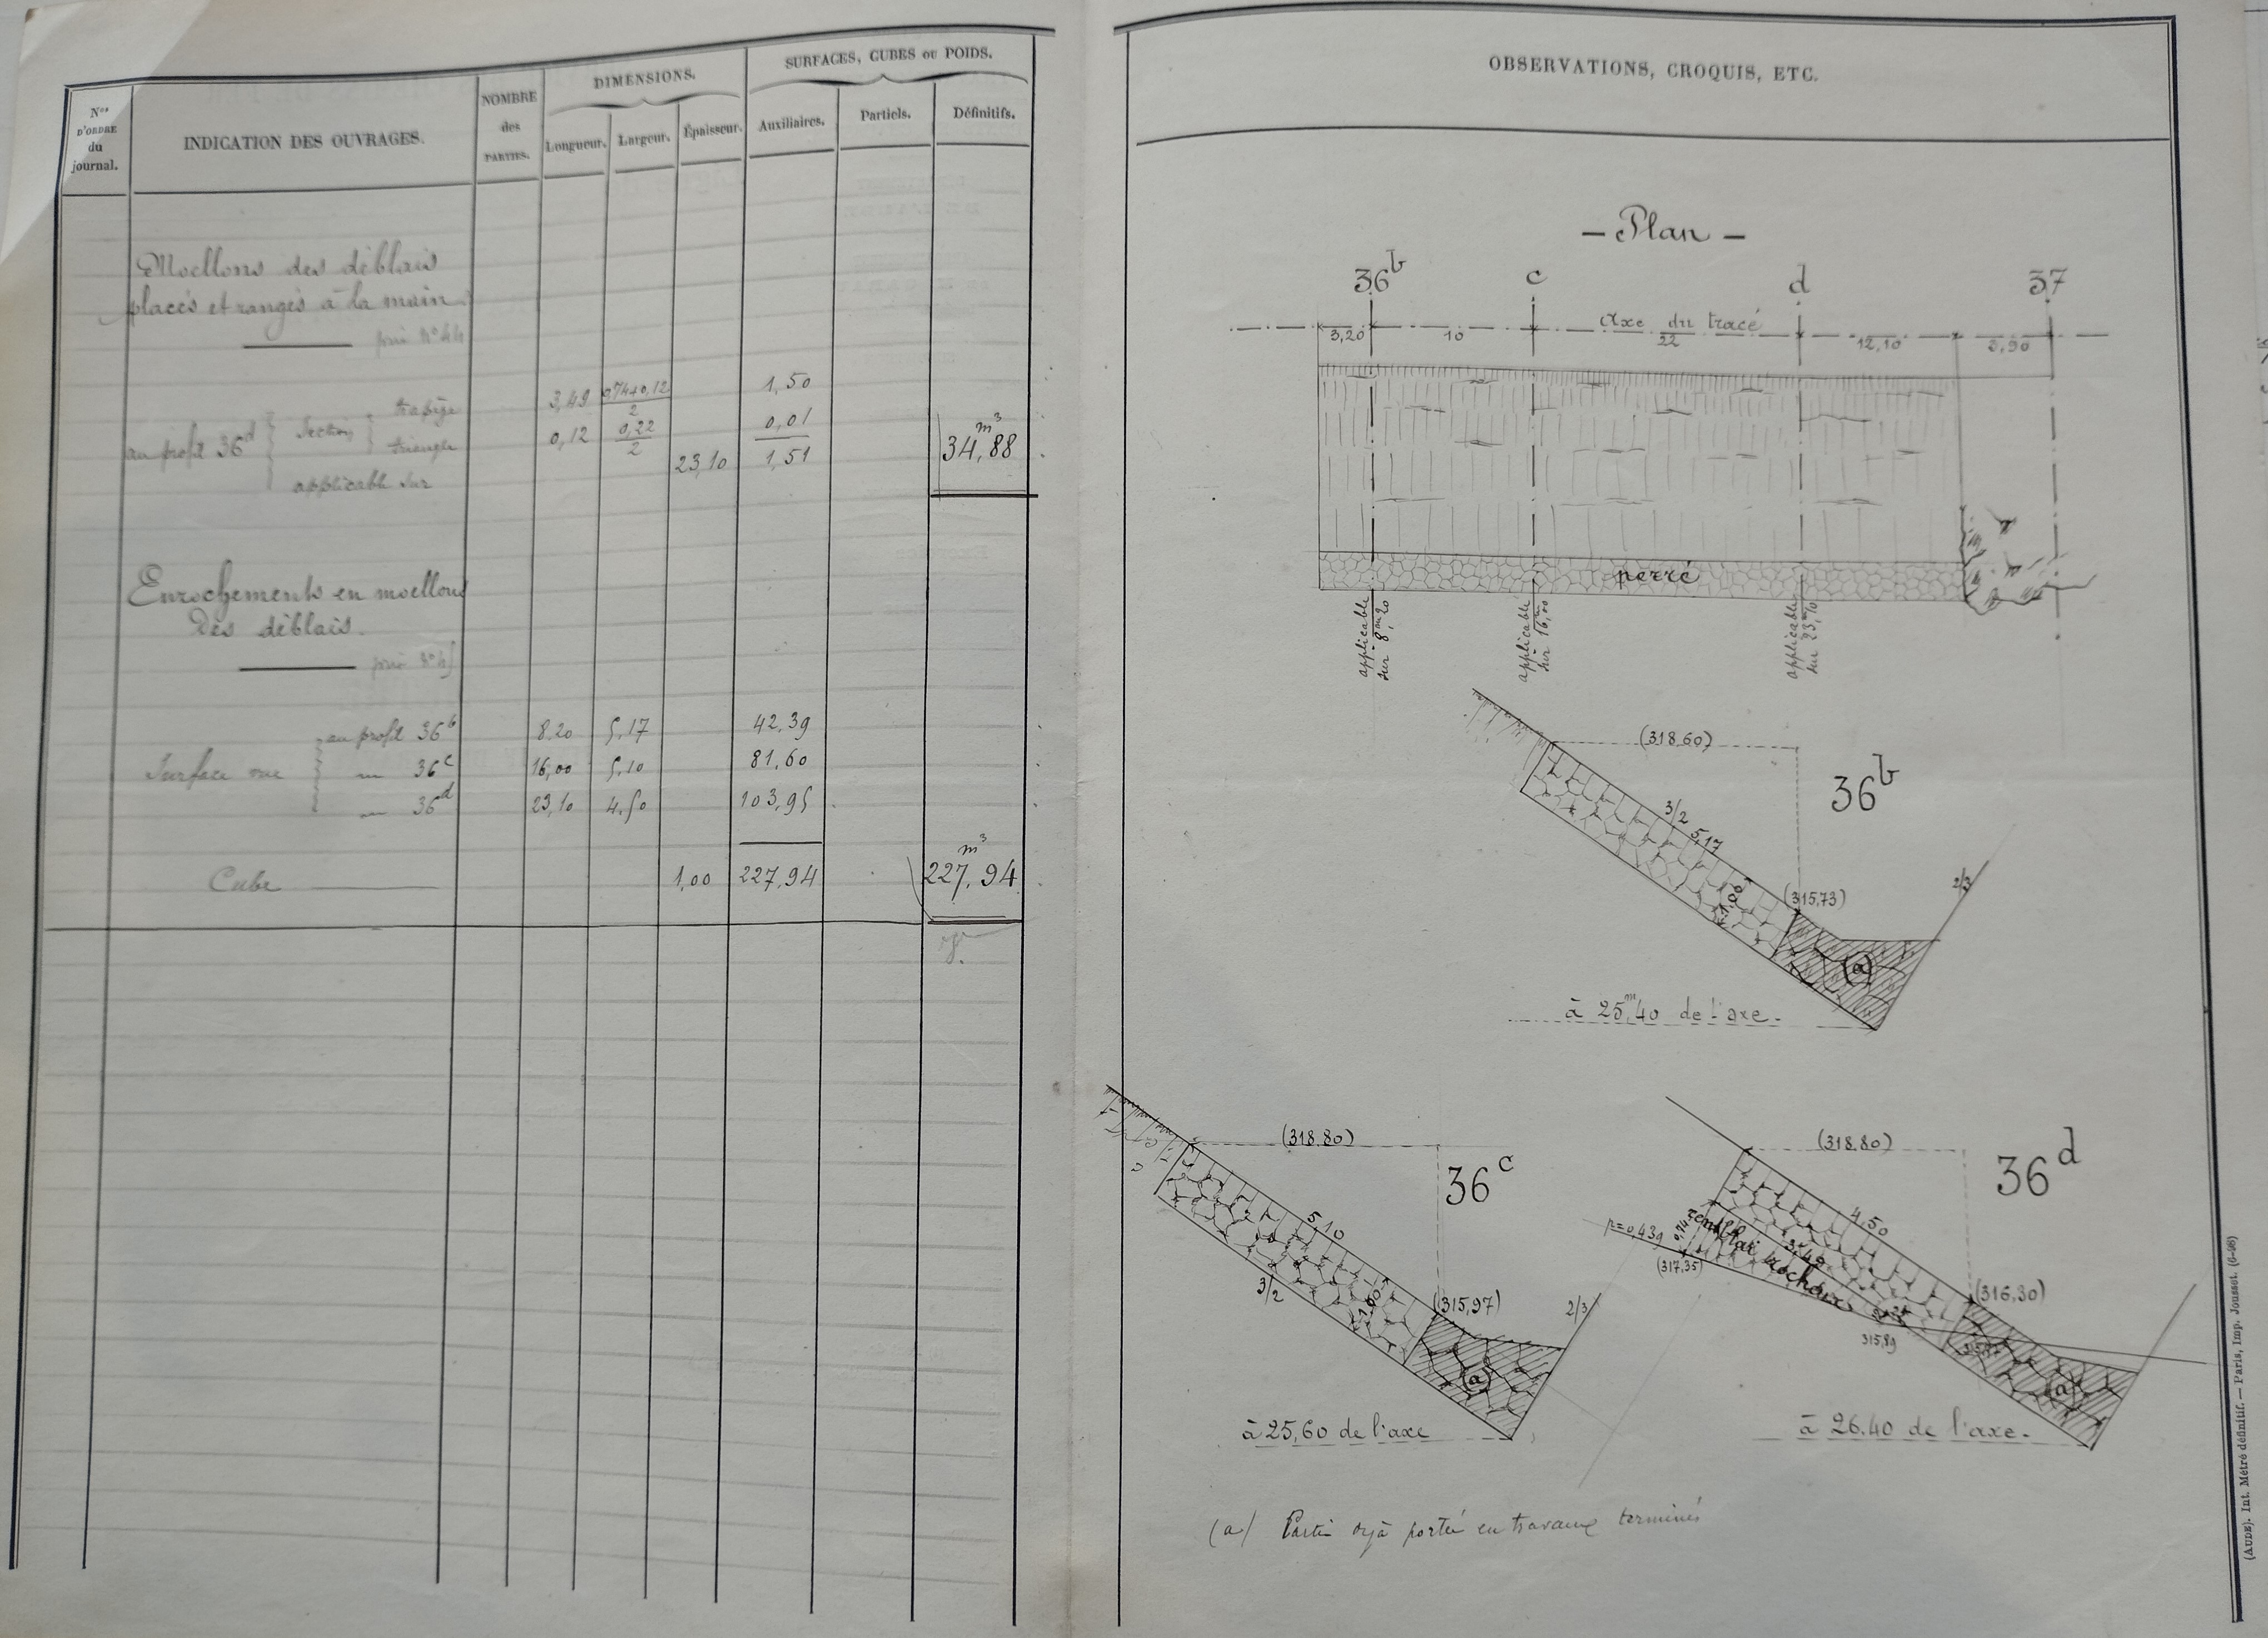 Nos
D'ORDRE
du
journal.
INDICATION DES OUVRAGES.
NOMBRE
des
PARTIES.
DIMENSIONS.
Longueur. Largeur. Épaisseur.
SURFACES, CUBES ou POIDS.
Auxiliaires. Partiels. Définitifs.
Moellons des déblais
placés et rangés à la main
prix N° 44
au profil 36d section trapèze 3,49 0,74+0,12/2 1,50
triangle 0,12 0,22/2 0,01
applicable sur 23,10 1,51 34,88 m3
Enrochements en moellons
des déblais.
Surface vue au profil 36b 8,20 5,17 42,39
36c 16,00 5,10 81,60
36d 23,10 4,50 103,95
Cube 1,00 227,94 227,94 m3
OBSERVATIONS, CROQUIS, ETC.
- Plan -
36b c d 37
Axe du tracé
3,20 10 22 12,10 3,90
perré
applicable
sur 8m,20
applicable
sur 16m,00
applicable
sur 23m,10
(318.60)
36b
3/2 5,17
1,00
(315,73)
2/3
(a)
à 25m,40 de l'axe.
(318.80)
36c
5,10
3/2
1,00
(315,97)
2/3
(a)
à 25,60 de l'axe
(318.80)
36d
4,50
p=0,439
0,74
remblai rocheux
3,49
(317,35)
(316,30)
315,89
(a)
à 26.40 de l'axe.
(a) Partie déjà portée en travaux terminés
(AUDE). Int. Métré définitif. — Paris, Imp. Jousset. (6-98)